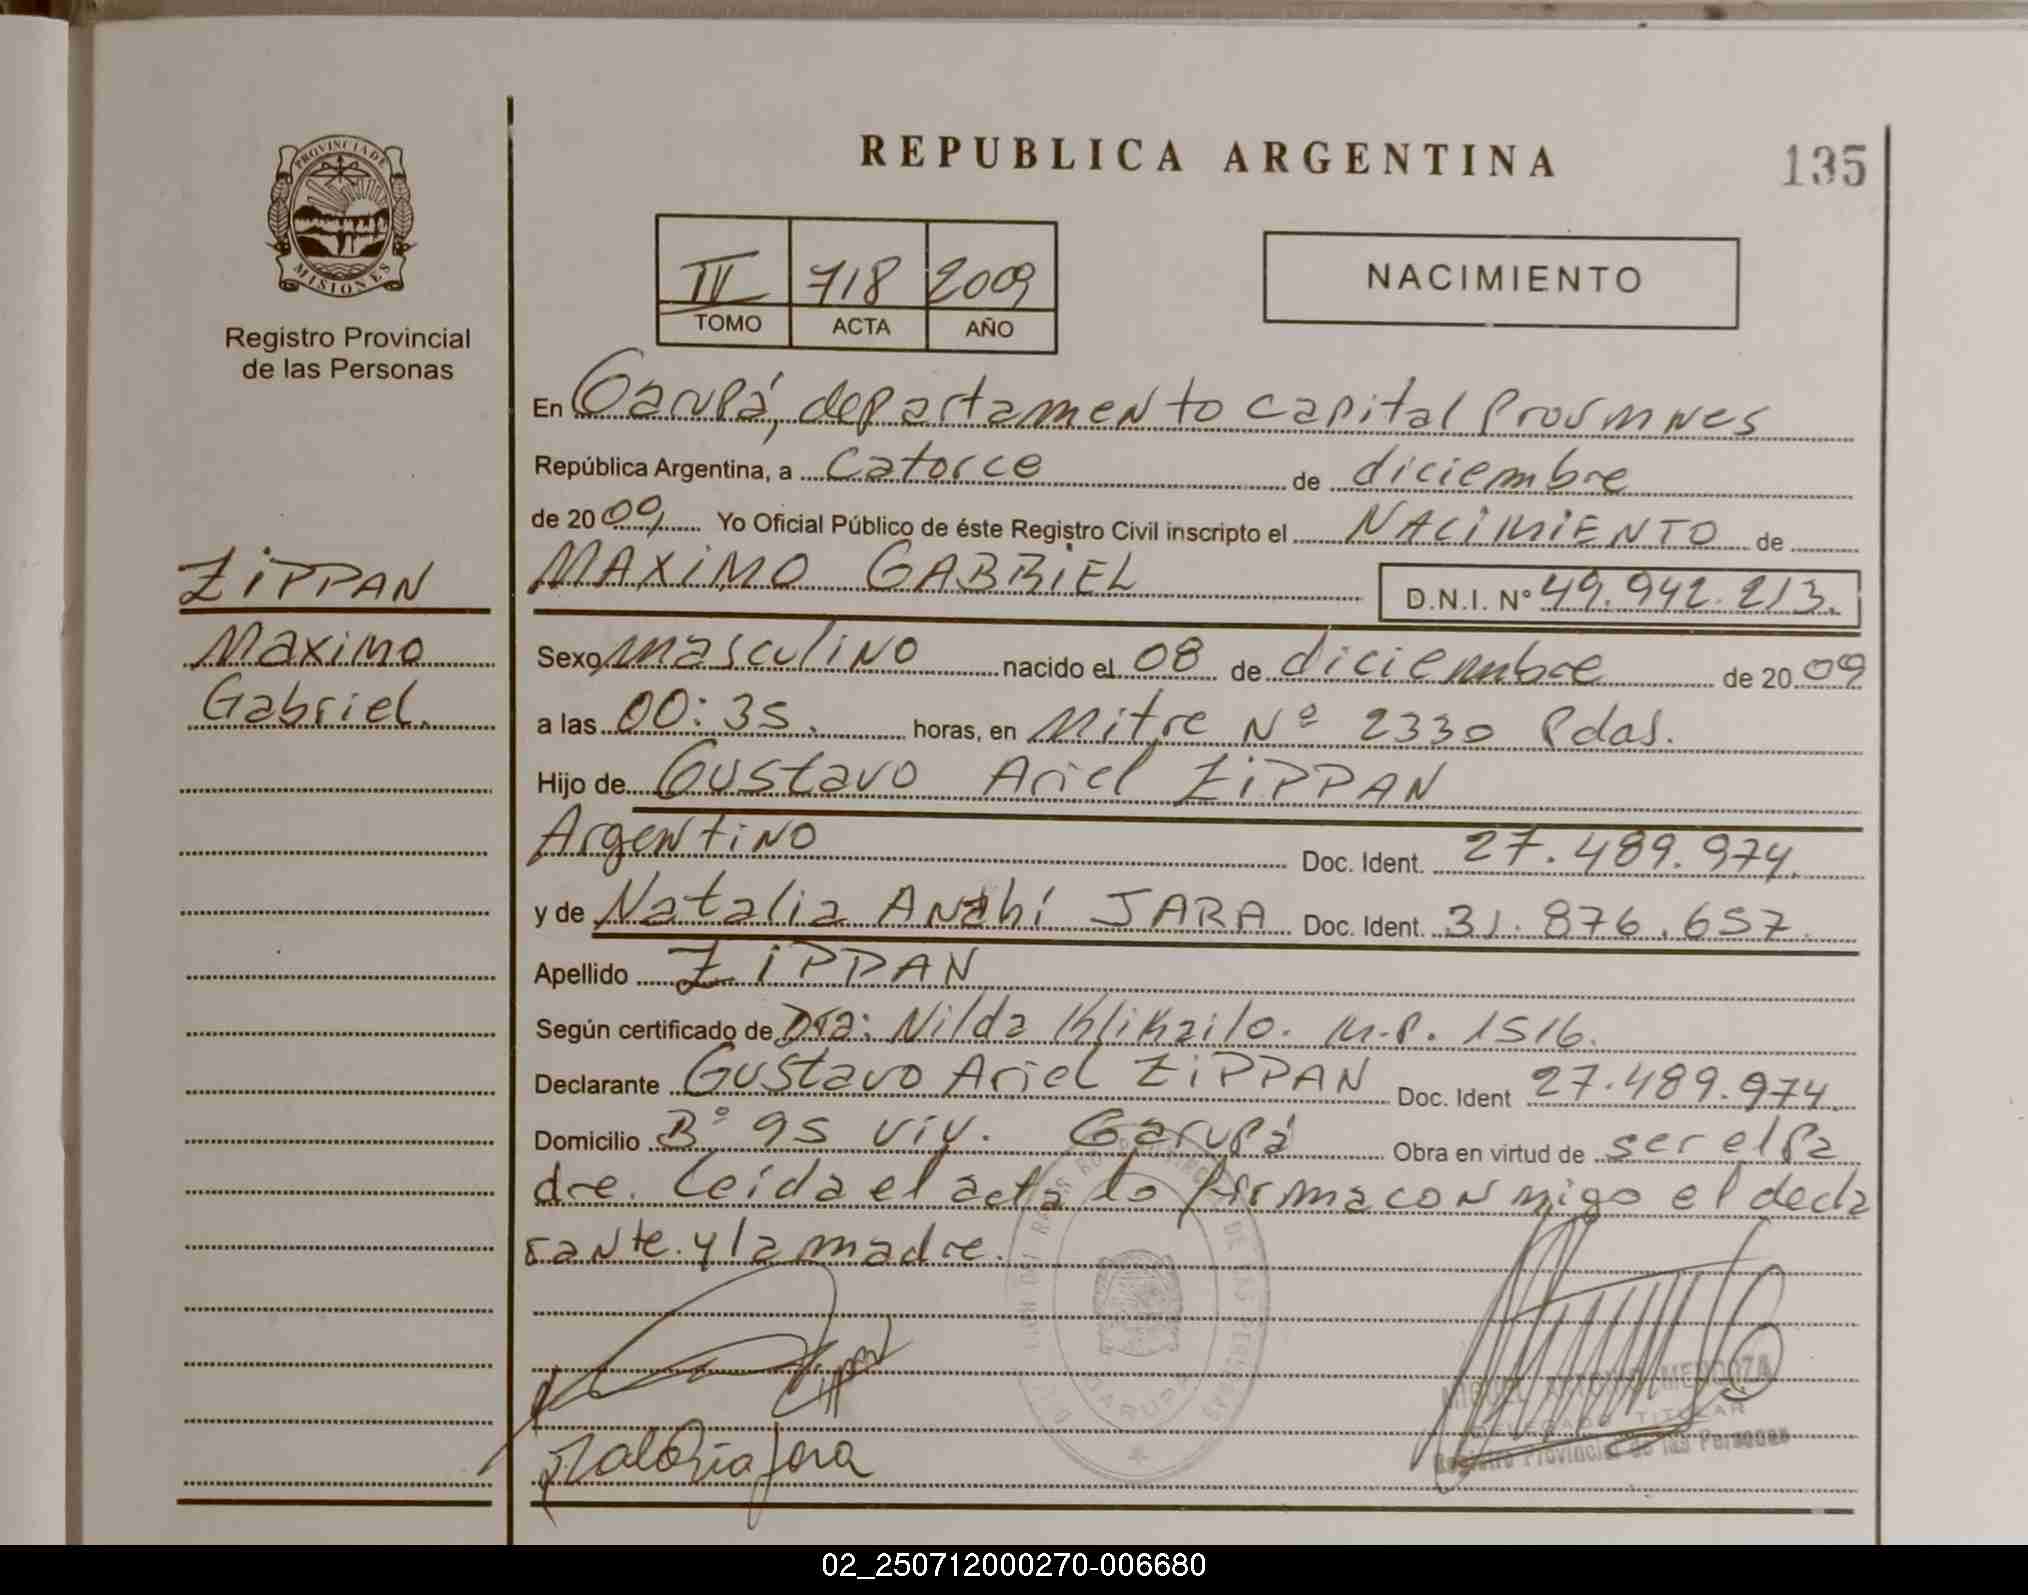 PROVINCIA DE
MISIONES
Registro Provincial
de las Personas
ZIPPAN
Maximo
Gabriel.
REPUBLICA ARGENTINA
135
IV 718 2009
TOMO ACTA AÑO
NACIMIENTO
En Garupá, departamento capital Prov mnes
República Argentina, a catorce de diciembre
de 2009 Yo Oficial Público de éste Registro Civil inscripto el NACIMIENTO de
MAXIMO GABRIEL D.N.I. Nº 49.942.213.
Sexo masculino nacido el 08 de diciembre de 2009
a las 00:35. horas, en Mitre Nº 2330 Pdas.
Hijo de Gustavo Ariel ZIPPAN
Argentino Doc. Ident. 27.489.974.
y de Natalia Anahí JARA Doc. Ident. 31.876.657.
Apellido ZIPPAN
Según certificado de Dra: Nilda Klikailo. M.P. 1516.
Declarante Gustavo Ariel ZIPPAN Doc. Ident 27.489.974.
Domicilio Bº 95 viv. Garupá Obra en virtud de ser el pa
dre. Leída el acta lo firma conmigo el decla
rante y la madre.
Natalia Jara
GARUPA
MIGUEL ANTONIO MENDOZA
DELEGADO TITULAR
Registro Provincial de las Personas
02_250712000270-006680